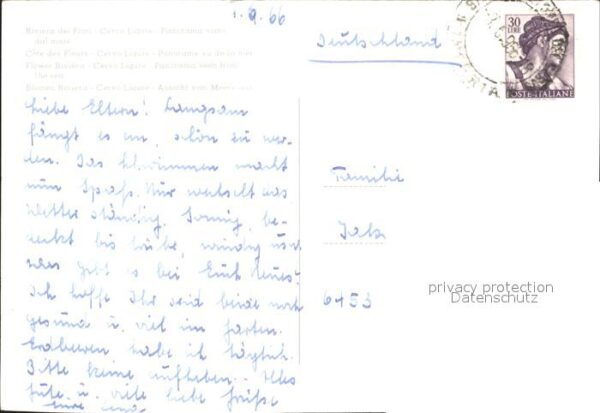 1.9.66
Riviera dei Fiori - Cervo Ligure - Panorama visto
dal mare
Côte des Fleurs - Cervo Ligure - Panorama vu de la mer
Flower Riviera - Cervo Ligure - Panorama seen from
the sea
Blumen Riviera - Cervo Ligure - Ansicht vom Meer
Deutschland
30
LIRE
POSTE ITALIANE
Liebe Eltern! Langsam
fängt es an, schön zu wer-
den. Das Schwimmen macht
nun Spaß. Nur wechselt das
Wetter ständig. Sonnig, be-
deckt bis trübe, windig usw.
was gibt es bei Euch Neues?
Ich hoffe Ihr seid beide noch
gesund u. viel im Garten.
Erdbeeren habe ich täglich.
Bitte keine aufheben. Alles
Gute u. viele liebe Grüße
Eure
Familie
6453
privacy protection
Datenschutz